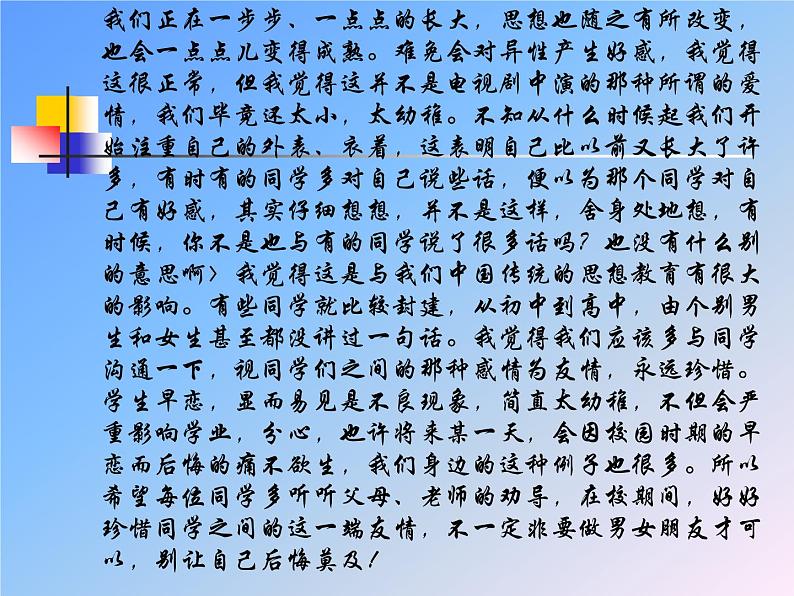 我们正在一步步、一点点的长大，思想也随之有所改变，
也会一点点儿变得成熟。难免会对异性产生好感，我觉得
这很正常，但我觉得这并不是电视剧中演的那种所谓的爱
情，我们毕竟还太小，太幼稚。不知从什么时候起我们开
始注重自己的外表、衣着，这表明自己比以前又长大了许
多，有时有的同学多对自己说些话，便以为那个同学对自
己有好感，其实仔细想想，并不是这样，舍身处地想，有
时候，你不是也与有的同学说了很多话吗？也没有什么别
的意思啊〉我觉得这是与我们中国传统的思想教育有很大
的影响。有些同学就比较封建，从初中到高中，由个别男
生和女生甚至都没讲过一句话。我觉得我们应该多与同学
沟通一下，视同学们之间的那种感情为友情，永远珍惜。
学生早恋，显而易见是不良现象，简直太幼稚，不但会严
重影响学业，分心，也许将来某一天，会因校园时期的早
恋而后悔的痛不欲生，我们身边的这种例子也很多。所以
希望每位同学多听听父母、老师的劝导，在校期间，好好
珍惜同学之间的这一端友情，不一定非要做男女朋友才可
以，别让自己后悔莫及！